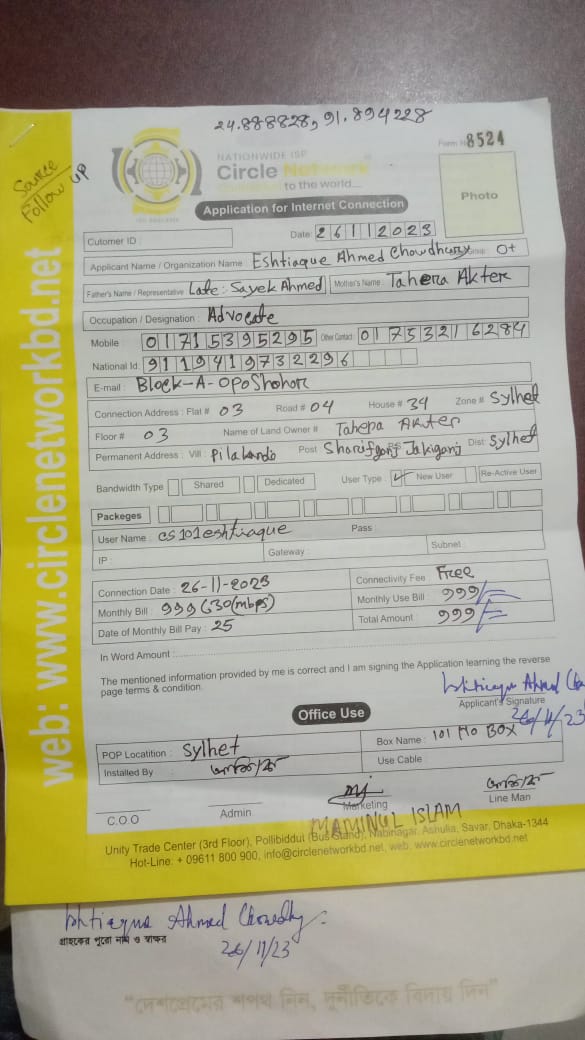 24.888828, 91.894228
Form # 8524
Source Follow UP
NATIONWIDE ISP
Circle Network
to the world...
Photo
Application for Internet Connection
Date: 26112023
Cutomer ID :
Applicant Name / Organization Name : Eshtiaque Ahmed Chowdhury Group O+
Father's Name / Representative Late: Sayek Ahmed Mother's Name : Tahera Akter
Occupation / Designation : Advocate
Mobile : 01715395295 Other Contact : 01753216284
National Id: 9119419732296
E-mail : Block-A-Oposhohor
Connection Address : Flat # 03 Road # 04 House # 34 Zone # Sylhet
Floor # 03 Name of Land Owner # Tahera Akter
Permanent Address : Vill : Pilakandi Post Sharifgonj P.S Jakigonj Dist : Sylhet
Bandwidth Type Shared Dedicated User Type : ✓ New User Re-Active User
Packeges
User Name : cs101eshtiaque Pass :
IP : Gateway : Subnet :
Connection Date : 26-11-2023 Connectivity Fee : Free
Monthly Bill : 999 (30(mbps) Monthly Use Bill : 999/=
Date of Monthly Bill Pay : 25 Total Amount : 999/=
In Word Amount :
The mentioned information provided by me is correct and I am signing the Application learning the reverse
page terms & condition.
Applicant's Signature
26/11/23
Office Use
POP Locatition : Sylhet Box Name : 101 No BOX
Installed By Use Cable :
C.O.O Admin Marketing Line Man
MAMINUL ISLAM
Unity Trade Center (3rd Floor), Pollibiddut (Bus Stand), Nabinagar, Ashulia, Savar, Dhaka-1344
Hot-Line: + 09611 800 900, info@circlenetworkbd.net, web: www.circlenetworkbd.net
web: www.circlenetworkbd.net
Ishtiaque Ahmed Chowdhy
গ্রাহকের পুরো নাম ও স্বাক্ষর
26/11/23
"দেশপ্রেমের শপথ নিন, দুর্নীতিকে বিদায় দিন"